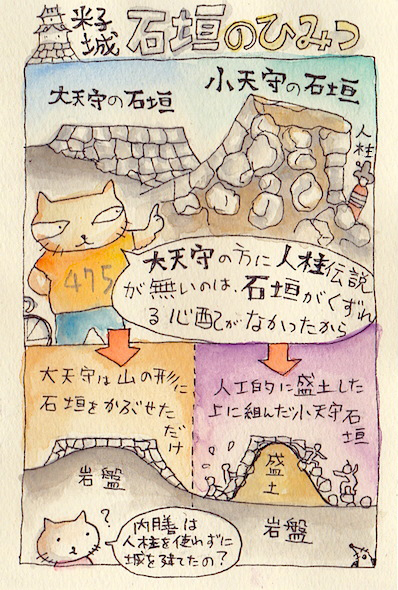 米子城 石垣のひみつ
大天守の石垣
小天守の石垣
人柱
475
大天守の方に人柱伝説
が無いのは、石垣がくずれ
る心配がなかったから
大天守は山の形に
石垣をかぶせた
だけ
人工的に盛土した
上に組んだ小天守石
垣
岩盤
盛土
岩盤
?
内膳は
人柱を使わずに
城を建てたの?